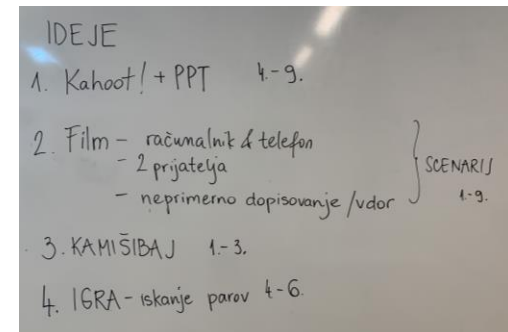 IDEJE
1. Kahoot! + PPT 4.-9.
2. Film - računalnik & telefon
- 2 prijatelja
- neprimerno dopisovanje /vdor
SCENARIJ
1.-9.
3. KAMIŠIBAJ 1.-3.
4. IGRA - iskanje parov 4-6.